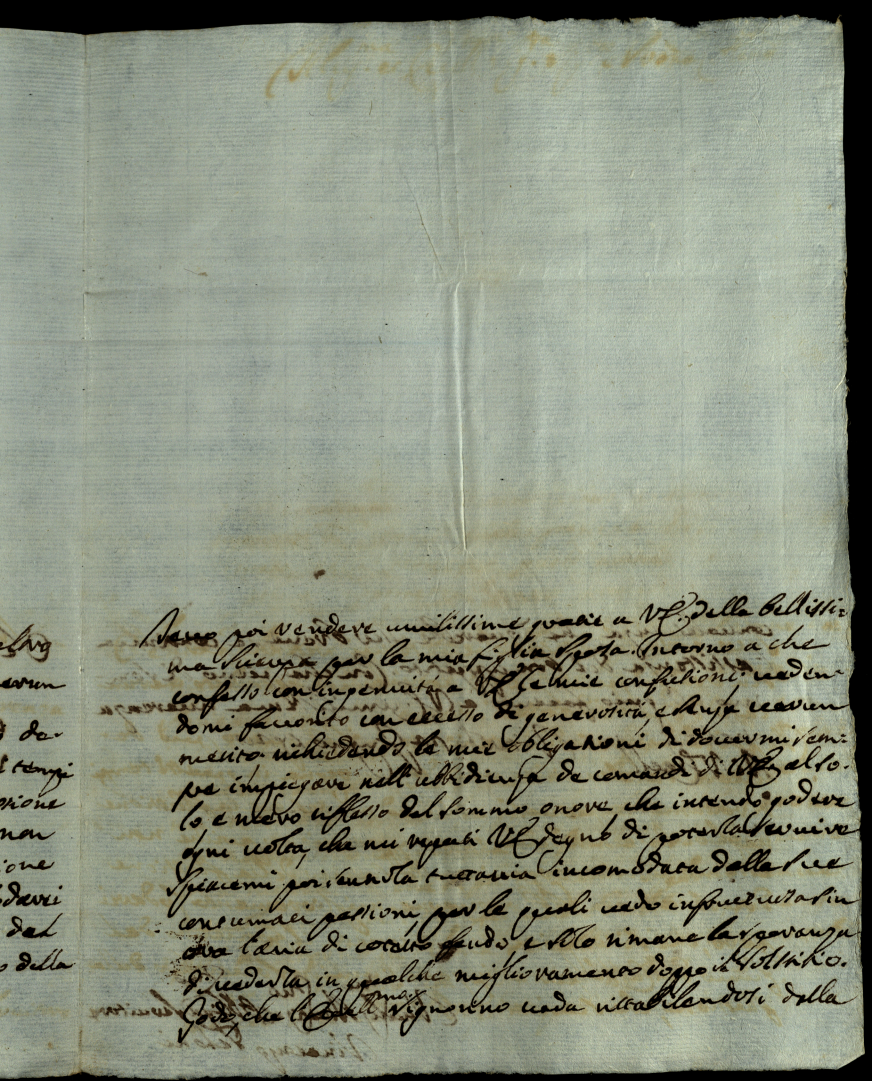 elvo
verun
da
tempi
sione
non
ione
darsi
dal
o della
Devo poi rendere umilissime grazie a V.E. della bellissi=
ma per la mia figlia Sposa. Intorno a che
confesso con ingenuità a V.E. le mie confusioni veden=
domi favorito con eccesso di generosità, e senza verun
merito richiedendo le mie obligationi di dovermi sem=
pre impiegare nell'ubbidienza de comandi di V.E. al so=
lo e mero riflesso del sommo onore che intendo godere
ogni volta, che mi reputi V.E. degno di poterla servire
Spiacemi poi sentirla tuttavia incomodata dalle sue
contumaci passioni, per le quali vedo infruttuosa sin
ora l'aria di cotesto feudo, e solo rimane la speranza
di vederla in qualche miglioramento doppo il Solstitio.
Godo, che l'Ecc.ma Signora nuora vada ristabilendosi della